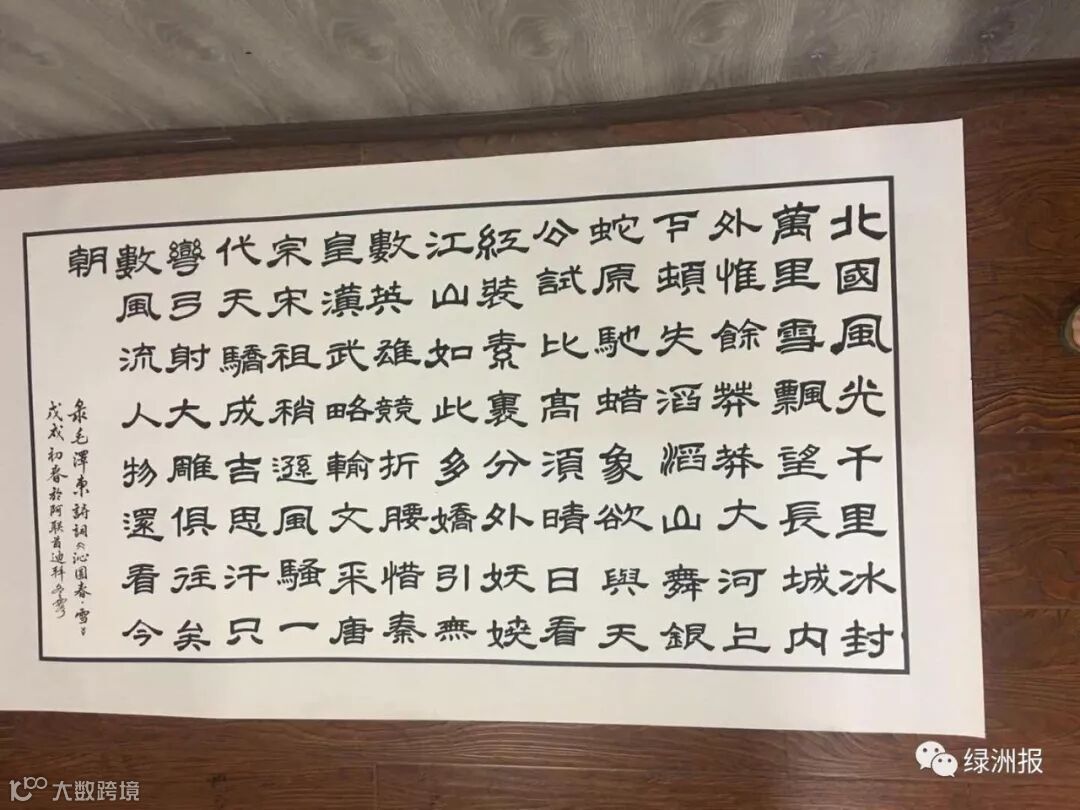 北國風光千里冰封
萬里雪飄望長城內
外惟餘莽莽大河上
下頓失滔滔山舞銀
蛇原馳蜡象欲與天
公試比高須晴日看
紅裝素裹分外妖嬈
江山如此多嬌引無
數英雄競折腰惜秦
皇漢武略輸文采唐
宗宋祖稍遜風騷一
代天驕成吉思汗只
彎弓射大雕俱往矣
數風流人物還看今
朝
录毛澤東詩詞《沁園春·雪》
戊戌初春於阿联酋迪拜
绿洲报
大数跨境